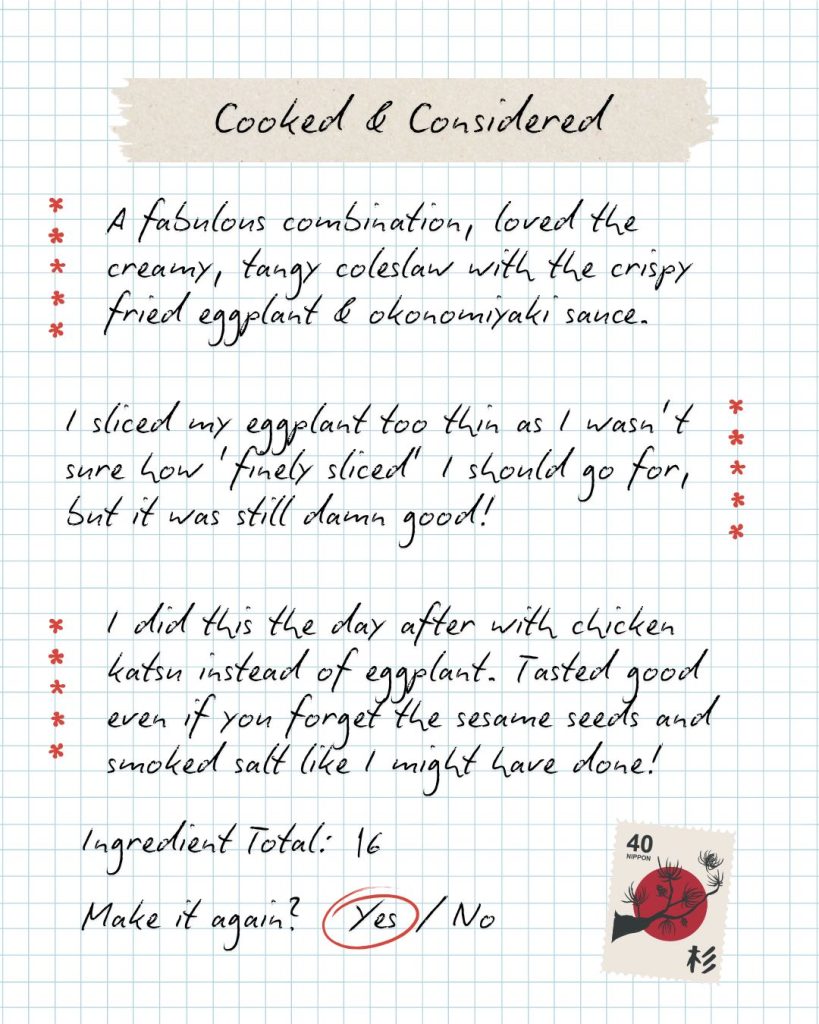 Cooked & Considered
A fabulous combination, loved the
creamy, tangy coleslaw with the crispy
fried eggplant & okonomiyaki sauce.
I sliced my eggplant too thin as I wasn't
sure how 'finely sliced' I should go for,
but it was still damn good!
I did this the day after with chicken
katsu instead of eggplant. Tasted good
even if you forget the sesame seeds and
smoked salt like I might have done!
Ingredient Total: 16
Make it again? Yes / No
40
NIPPON
杉